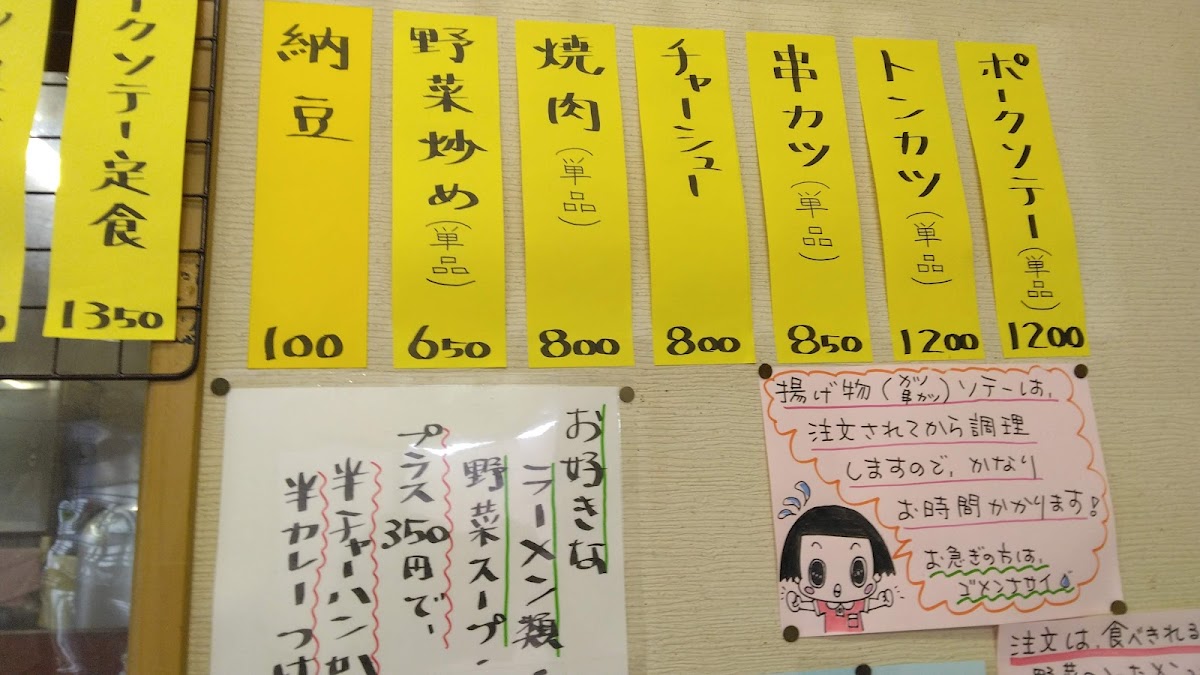 ポークソテー(単品)
1200
トンカツ(単品)
1200
串カツ(単品)
850
チャーシュー
800
焼肉(単品)
800
野菜炒め(単品)
650
納豆
100
クソテー定食
1350
お好きな
ラーメン類・
野菜スープ・
プラス350円で、
半チャーハンか
半カレーつけ
揚げ物(カツ串カツ)ソテーは、
注文されてから調理
しますので、かなり
お時間かかります!
お急ぎの方は、
ゴメンナサイ
注文は、食べきれる